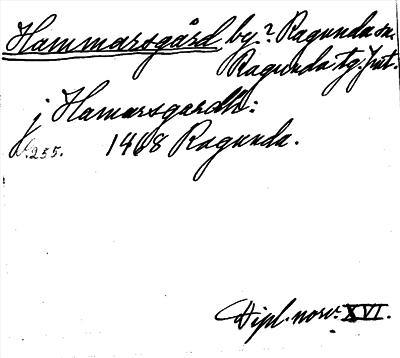 Hammarsgård, by? Ragunda sn.
Ragunda tg. Jmt.
j Hamarsgardh:
1468 Ragunda.
255.
Dipl. norv. XVI.